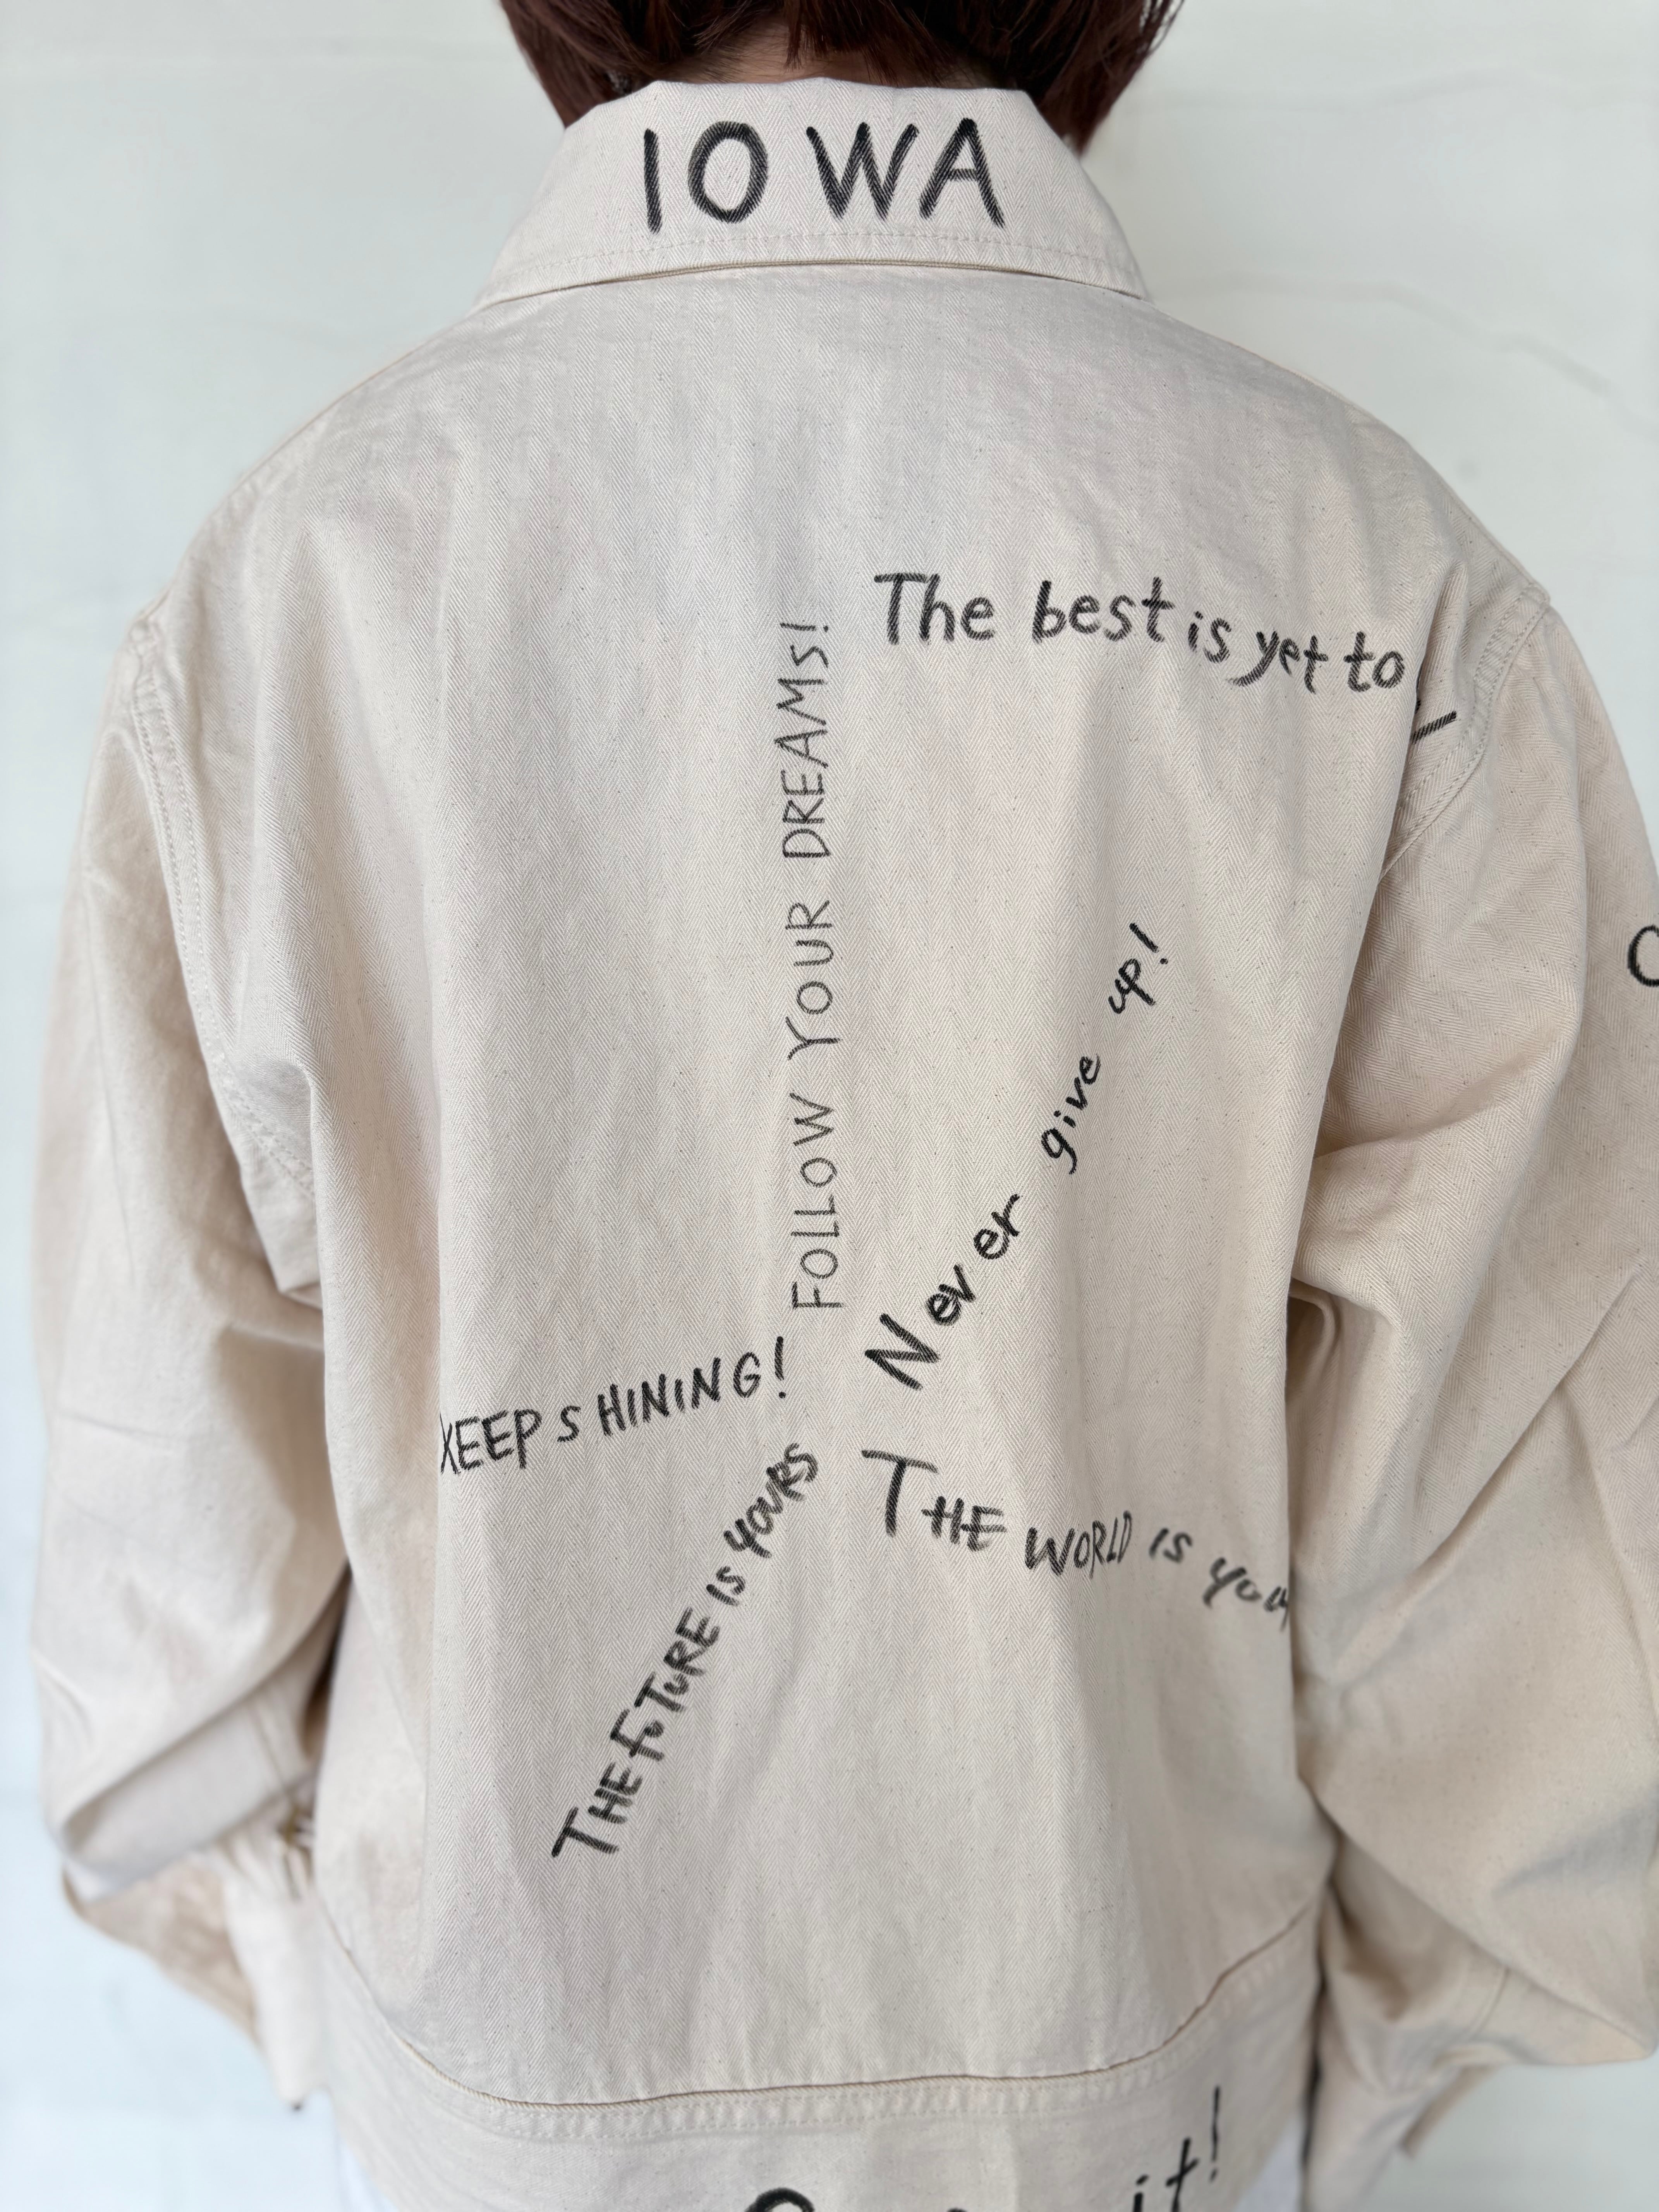 IOWA
The best is yet to
FOLLOW YOUR DREAMS!
Never give up!
KEEP SHINING!
THE FUTURE IS YOURS
THE WORLD IS
it!